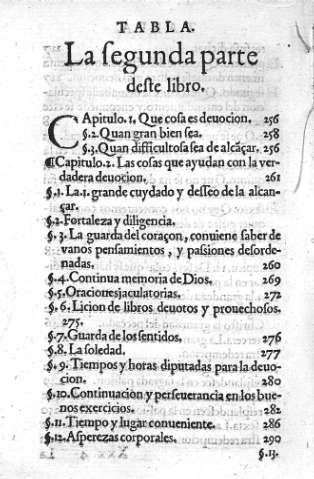 TABLA.
La segunda parte
deste libro.
CApitulo.1. Que cosa es deuocion. 256
§.2.Quan gran bien sea. 258
§.3.Quan difficultosa sea de alcãçar. 256
¶Capitulo.2. Las cosas que ayudan con la ver-
dadera deuocion. 261
§.1.La.1. grande cuydado y desseo de la alcan-
çar.
§.2.Fortaleza y diligencia.
§.3.La guarda del coraçon, conuiene saber de
vanos pensamientos, y passiones desorde-
nadas. 260
§.4.Continua memoria de Dios. 269
§.5.Oraciones jaculatorias. 272
§.6.Licion de libros deuotos y prouechosos.
275.
§.7.Guarda de los sentidos. 276
§.8.La soledad. 277
§.9.Tiempos y horas diputadas para la deuo-
cion. 280
§.10.Continuacion y perseuerancia en los bue-
nos exercicios. 282
§.11.Tiempo y lugar conueniente. 286
§.12.Asperezas corporales. 290
§.13.